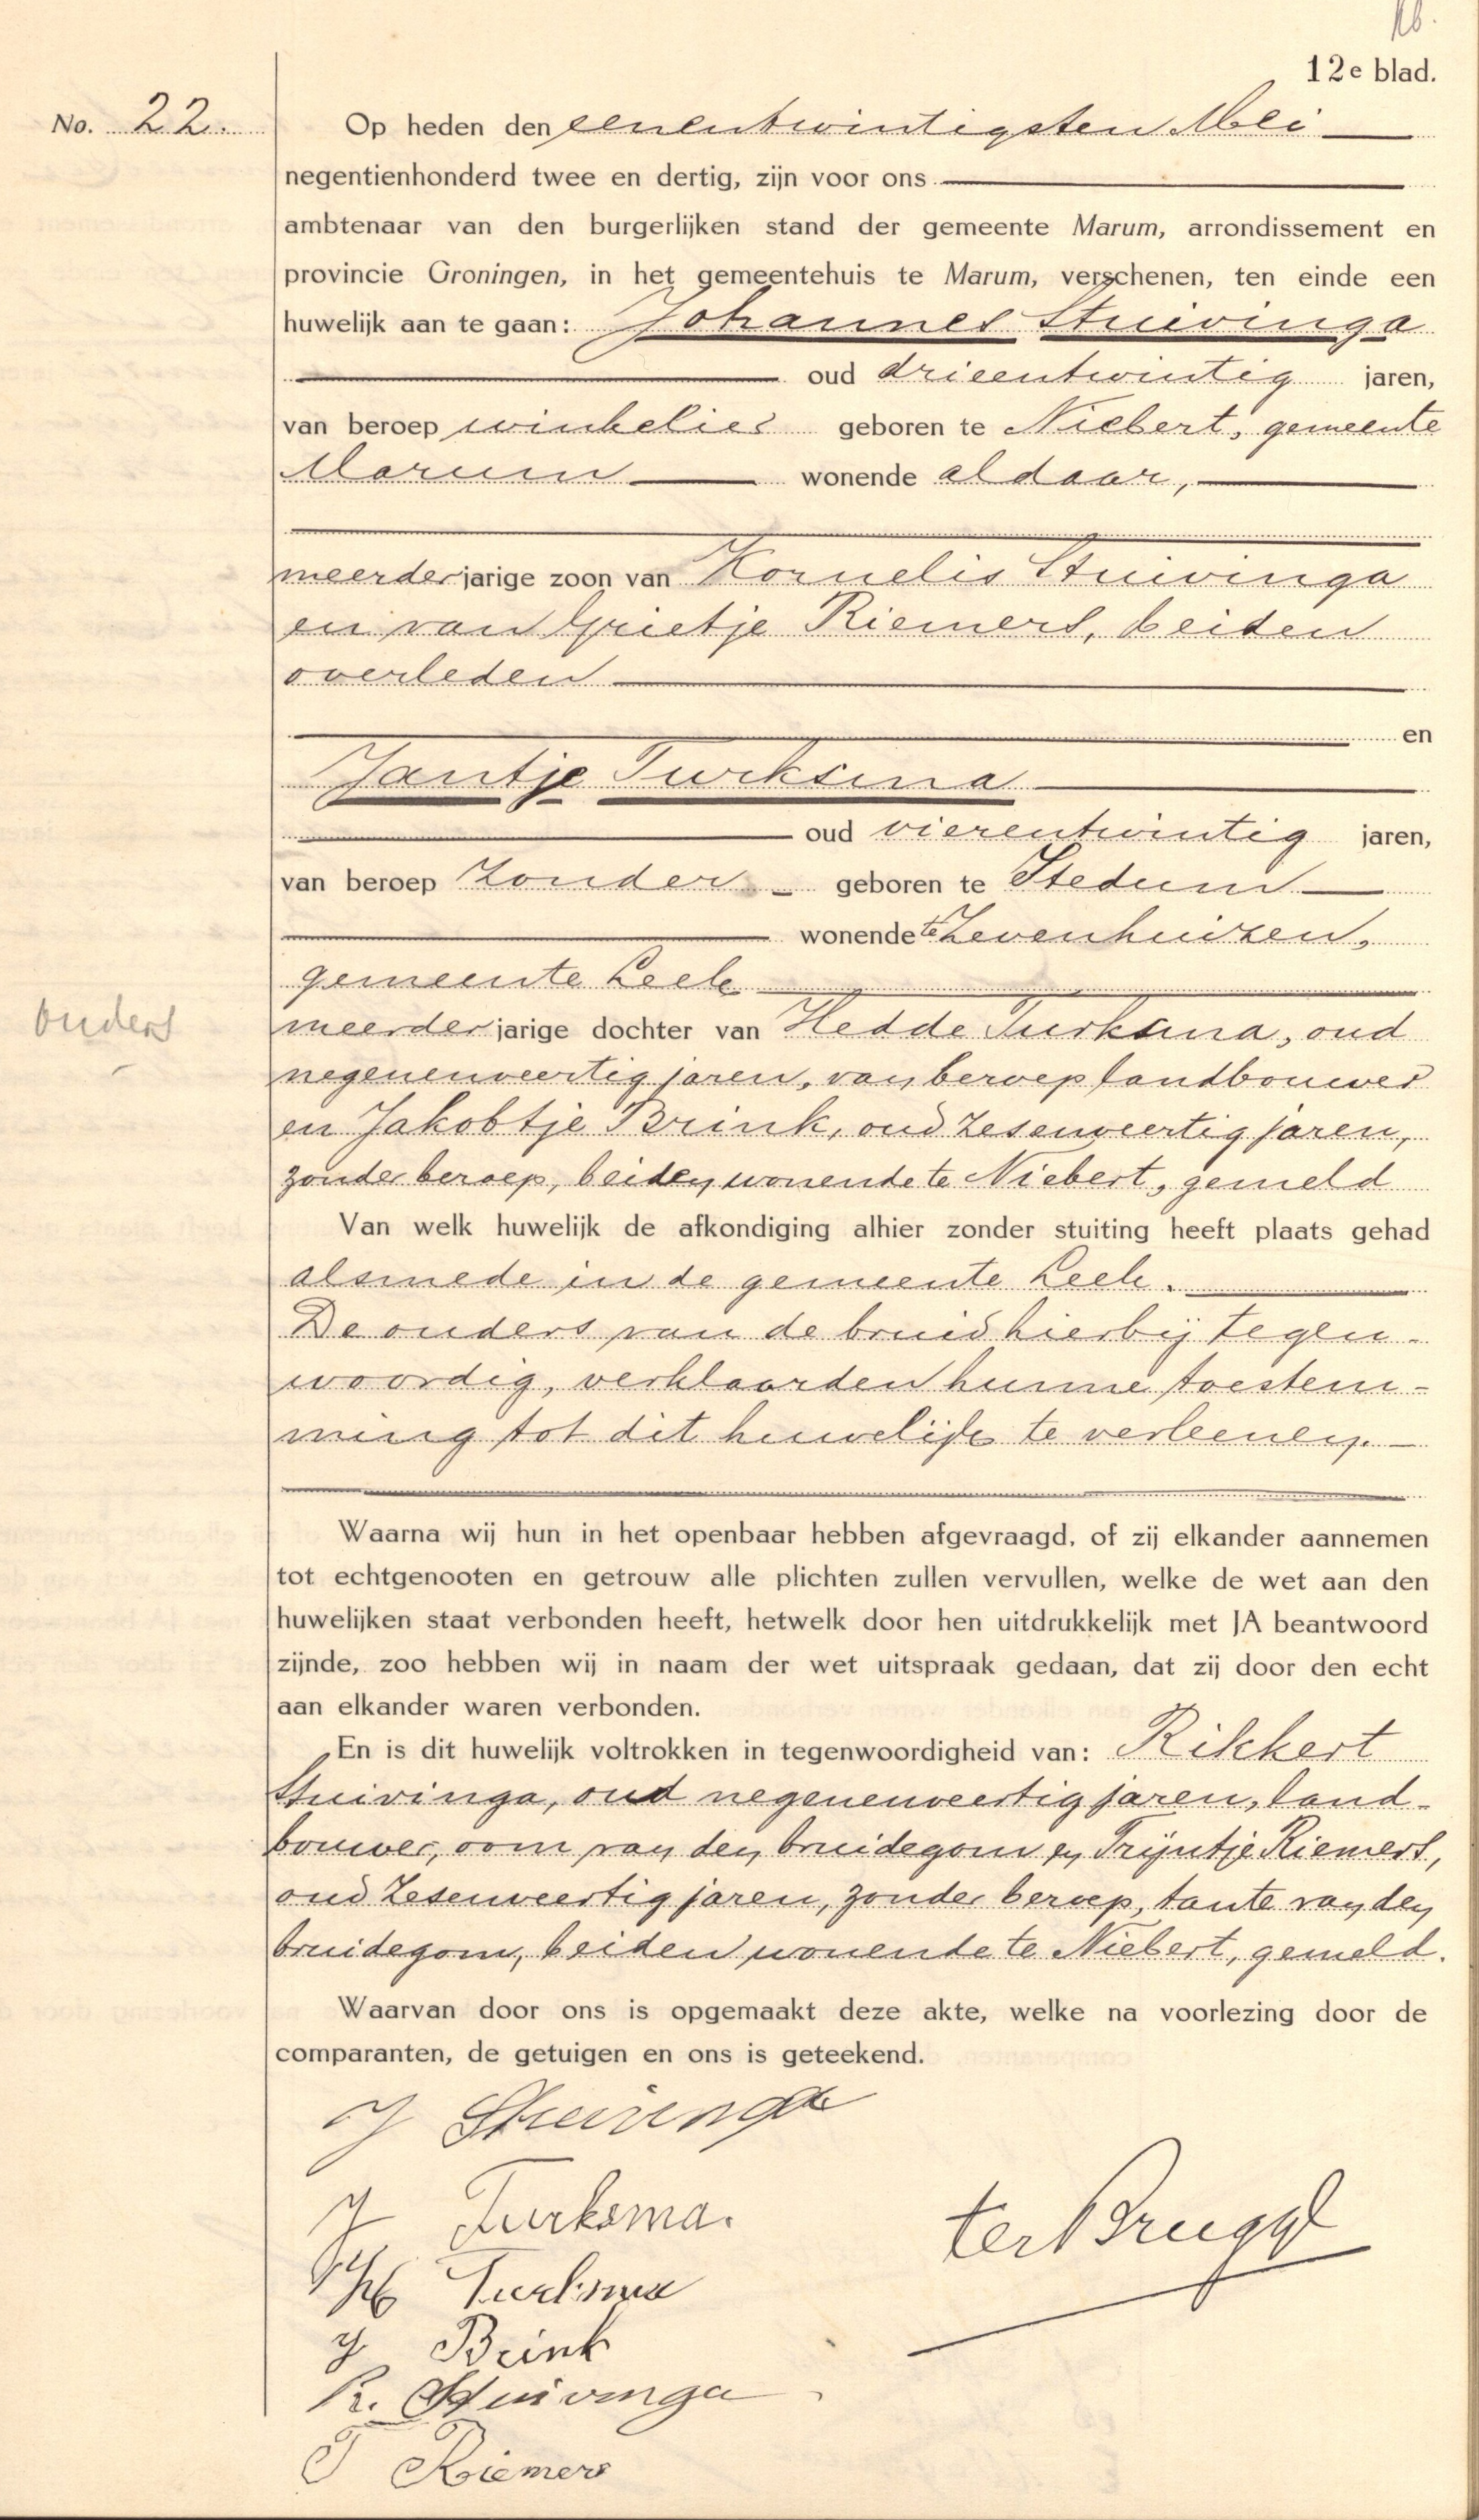 12e blad.
No. 22.
Op heden den eenentwintigsten Mei
negentienhonderd twee en dertig, zijn voor ons
ambtenaar van den burgerlijken stand der gemeente Marum, arrondissement en
provincie Groningen, in het gemeentehuis te Marum, verschenen, ten einde een
huwelijk aan te gaan: Johannes Stuivinga
oud drieentwintig jaren,
van beroep winkelier geboren te Niebert, gemeente
Marum wonende aldaar,
meerderjarige zoon van Kornelis Stuivinga
en van Grietje Riemers, beiden
overleden
en
Jantje Turksma
oud vierentwintig jaren,
van beroep zonder geboren te Stedum
wonende te Zevenhuizen,
gemeente Leek
ouders
meerderjarige dochter van Hedde Turksma, oud
negenenveertig jaren, van beroep landbouwer
en Jakobtje Brink, oud zesenveertig jaren,
zonder beroep, beiden wonende te Niebert, gemeld
Van welk huwelijk de afkondiging alhier zonder stuiting heeft plaats gehad
alsmede in de gemeente Leek.
De ouders van de bruid hierbij tegen-
woordig, verklaarden hunne toestem-
ming tot dit huwelijk te verleenen.
Waarna wij hun in het openbaar hebben afgevraagd, of zij elkander aannemen
tot echtgenooten en getrouw alle plichten zullen vervullen, welke de wet aan den
huwelijken staat verbonden heeft, hetwelk door hen uitdrukkelijk met JA beantwoord
zijnde, zoo hebben wij in naam der wet uitspraak gedaan, dat zij door den echt
aan elkander waren verbonden.
En is dit huwelijk voltrokken in tegenwoordigheid van: Rikkert
Stuivinga, oud negenenveertig jaren, land-
bouwer, oom van den bruidegom en Trijntje Riemers,
oud zesenveertig jaren, zonder beroep, tante van den
bruidegom, beiden wonende te Niebert, gemeld.
Waarvan door ons is opgemaakt deze akte, welke na voorlezing door de
comparanten, de getuigen en ons is geteekend.
J Stuivinga
J Turksma.
ter Brugge
H Turksma
J Brink
R. Stuivinga
T Riemers